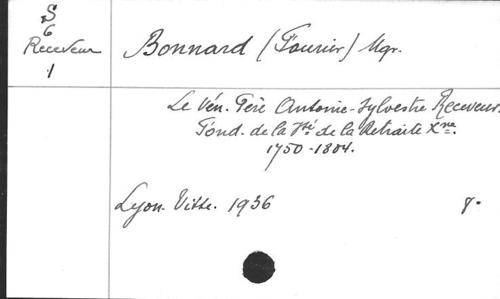 S
6
Receveur
1
Bonnard (Fourier) Mgr.
Le Vén. Père Antoine-Sylvestre Receveur.
Fond. de la Sté de la Retraite Xne.
1750-1804.
Lyon. Vitte. 1936 8°